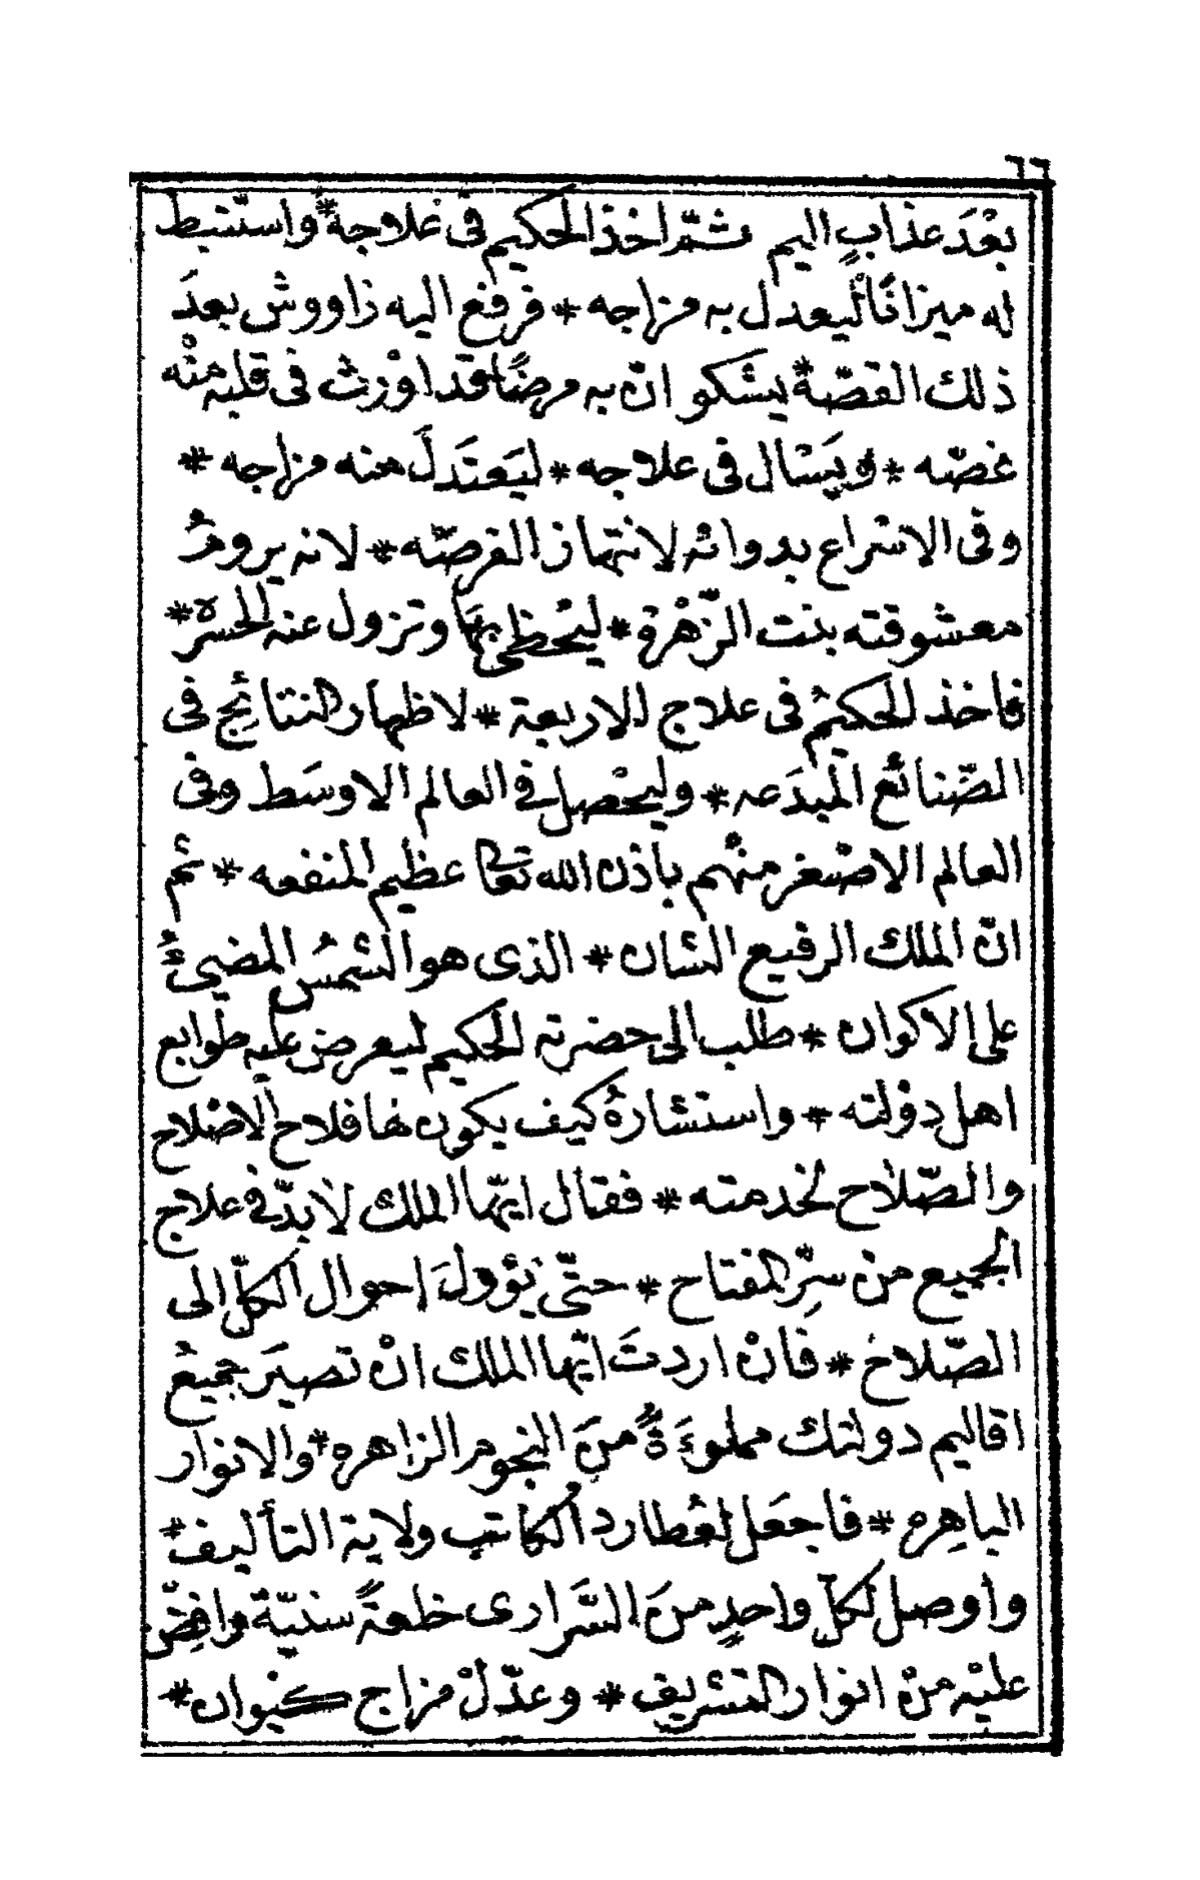 ٦٦
بعْدَ عذابٍ اليم ثمّ اخذ الحكيم فى علاجه * واستنبط
له ميزانًا ليعدل به مزاجه * فرفع اليه زاووش بعدَ
ذلك القصّة * يشكو انّ به مرضًا قد اوْرث فى قلبه منْه
غصّه * ويَسْال فى علاجه * ليَعتَدلَ منه مزاجه *
وفى الاسْراع بدوائه لانتهاز الفرصّه * لانه يرومُ
معشوقته بنت الزّهْرة * ليحْظى بهَا وتزول عنه الحسْرة *
فاخذ الحكيمُ فى علاج الاربعة * لاظهار النتائج فى
الصّنائع المبدَعه * وليحْصل فى العالم الاوسَط وفى
العالم الاصْغر منْهم باذن الله تعالى عظيم المنفعه * ثم
انّ الملك الرفيع الشان * الذى هو الشمسُ المضيئُ
على الاكوان * طلب الى حضرته الحكيم ليعرض عليه طوابع
اهل دوْلته * واستشارهُ كيف يكون لها فلاح الاصْلاح
والصّلاح لخدمته * فقال ايّها الملك لا بدّ فى علاج
الجميع منْ سِرِّ المفتاح * حتّى نؤولَ احوال الكلّ الى
الصّلاح * فانْ اردتَ ايّها الملك انْ تصيَر جميعُ
اقاليم دولتك مملوءَةً منَ النجوم الزاهره * والانوار
الباهِره * فاجعَل لعُطارد الكاتب ولاية التأليف *
واوصل لكلّ واحدٍ منَ السَّرارى خلعةً سنيّة وافضّ
عليْه منْ انوار التشريف * وعدّلْ مزاج كيْوان *